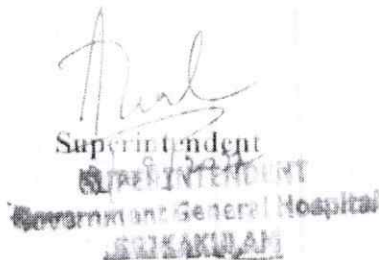 Superintendent
SUPERINTENDENT
Government General Hospital
SRIKAKULAM